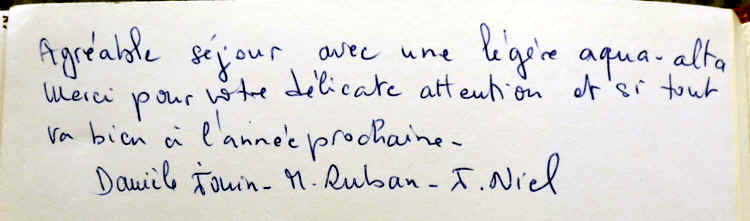 Agréable séjour avec une légère aqua-alta
Merci pour votre délicate attention et si tout
va bien à l'année prochaine-
Danièle - M. Ruban - F. Niel